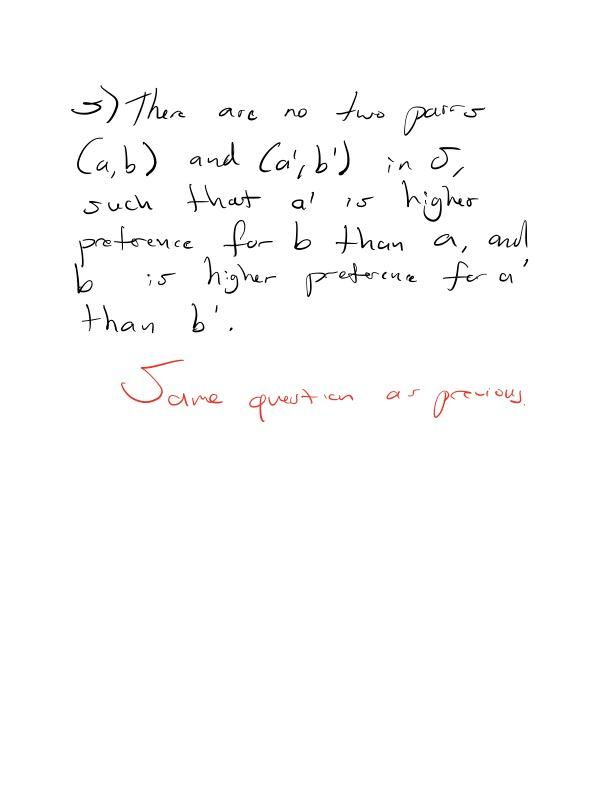 5) There are no two pairs
(a,b) and (a',b') in S,
such that a' is higher
preference for b than a, and
b is higher preference for a'
than b'.
Same question as previous.